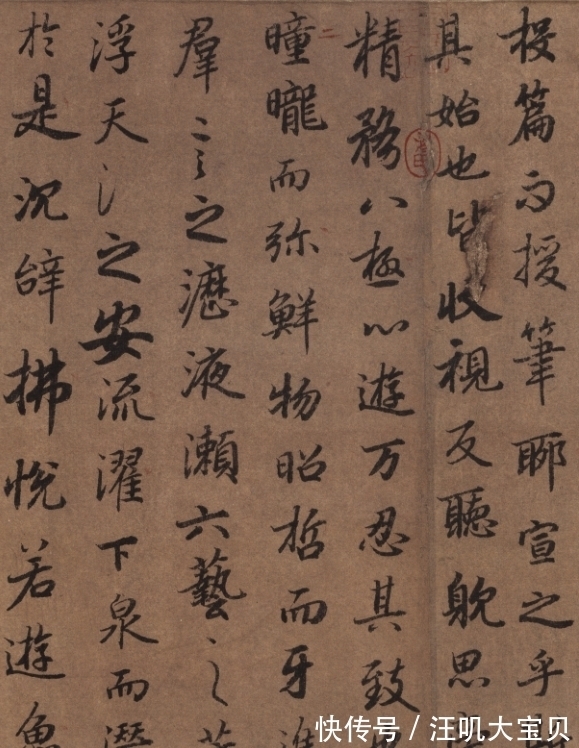 投篇而援筆聊宣之乎
其始也皆收視反聽躭思
精務八極心遊万忍其致
曈曨而弥鮮物昭哲而牙進
羣言之瀝液瀨六藝之芳
浮天氵之安流濯下泉而潛
於是沉辭拂悅若遊魚
快传号/汪叽大宝贝